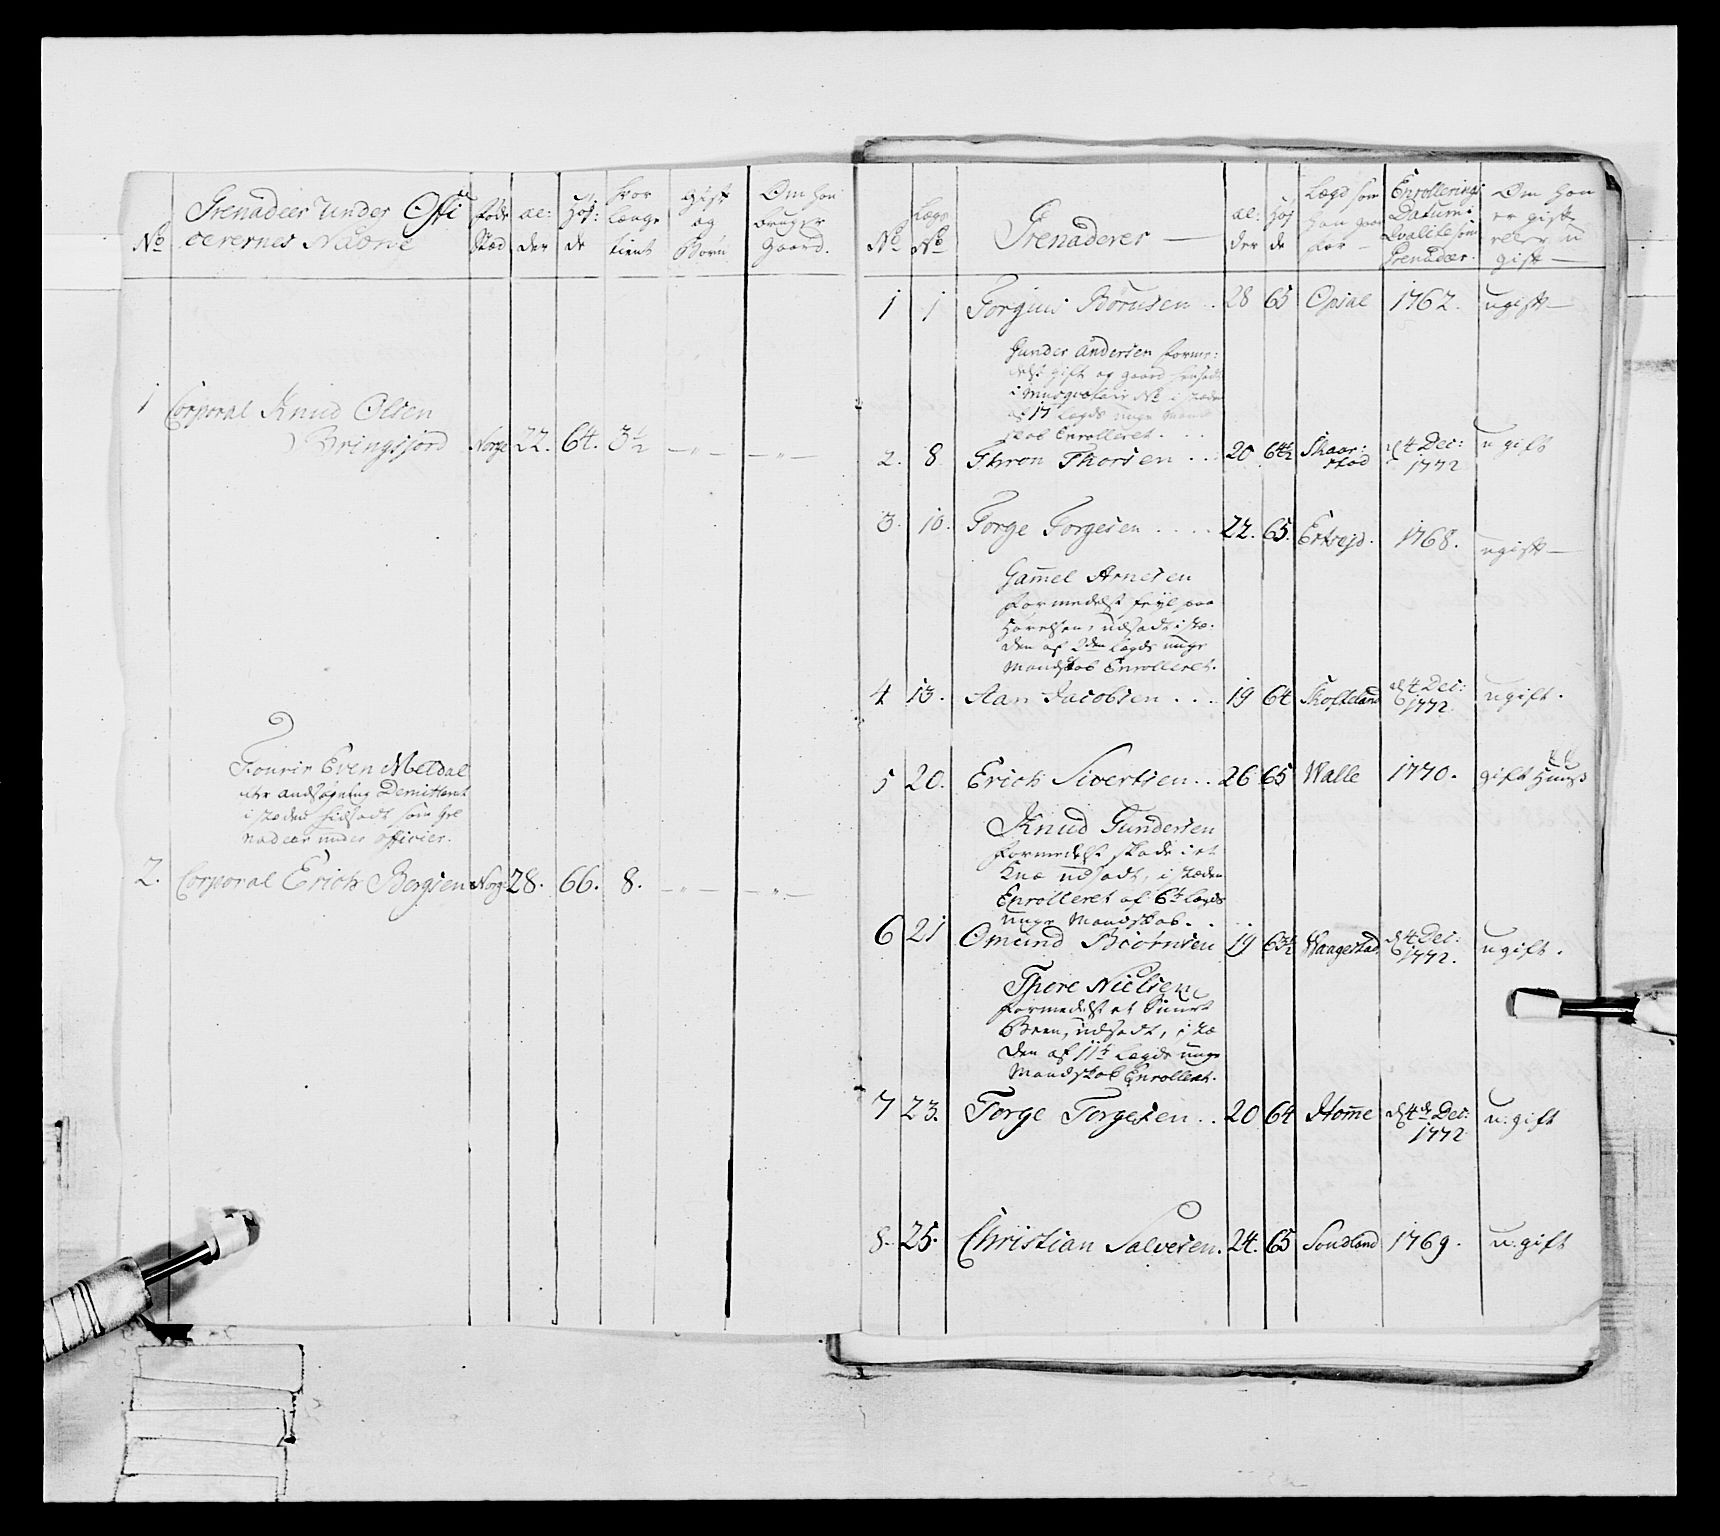 No Grenadeer Under Offi
cerernes Nafne
føde
Stæd
al:
der
Høj:
de
hvor
længe
tient
gift
og
Børn
Om han
bruger
Gaard.
1 Corporal Knud Olsen
Bringsjord Norge 22. 64. 3½ — " — — " —
Fourir Even Meldal
efter andsøgning Demitteret
i stæden hidsadt som Gre
nadeer under officier.
2. Corporal Erich Bergsen Norge 28. 66. 8. — " — — " —
No
Lægs
No
Grenaderer —
al:
der
Høj
de
Lægd som
han staar
for —
Enrollerings
Datum i
Qvalite som
Grenadeer.
Om han
er gift
eller u
gift —
1 1 Torgius Börusen . . 28 65 Opsal 1762. ugift —
Gunder Andersen forme:
delst gift og gaard hensadt
i Musqvetair No i stæden
af 17 Lægds unge Mand
skab Enrolleret. . .
2. 8. Thron Thorsen . . . 20 64½ Skaar:
stad d 4 Dec:
1772 u gift
3. 10. Torge Torgesen . . . . 22. 65. 1768. ugift —
Gam̄el Arnesen
formedelst feyl paa
Hørelsen, udsadt i stæ
den af 2den Lægds unge
Mandskab Enrolleret.
4 13. Aan Jacobsen . . . 19 64 Skofteland d 4 Dec:
1772. ugift.
5 20. Erich Sivertsen . . 26 65 Walle 1770. gift Huus
Knud Gundersen
formedelst skade i et
Knæ udsadt, i stæden
Enrolleret af 6t Lægds
unge Mandskab. . .
6 21 Omund Biörnsen 19 63½ Waagestad d 4 Dec:
1772. ugift.
Thore Nielsen
formedelst et
Been, udsadt, i stæ
den af 11t Lægds unge
Mandskab Enrolleret.
7 23. Torge Torgesen . . 20 64 Hom̄e d 4 de Dec:
1772 u: gift
8. 25. Christian Salvesen. 24. 65 Sondland 1769. u: gift